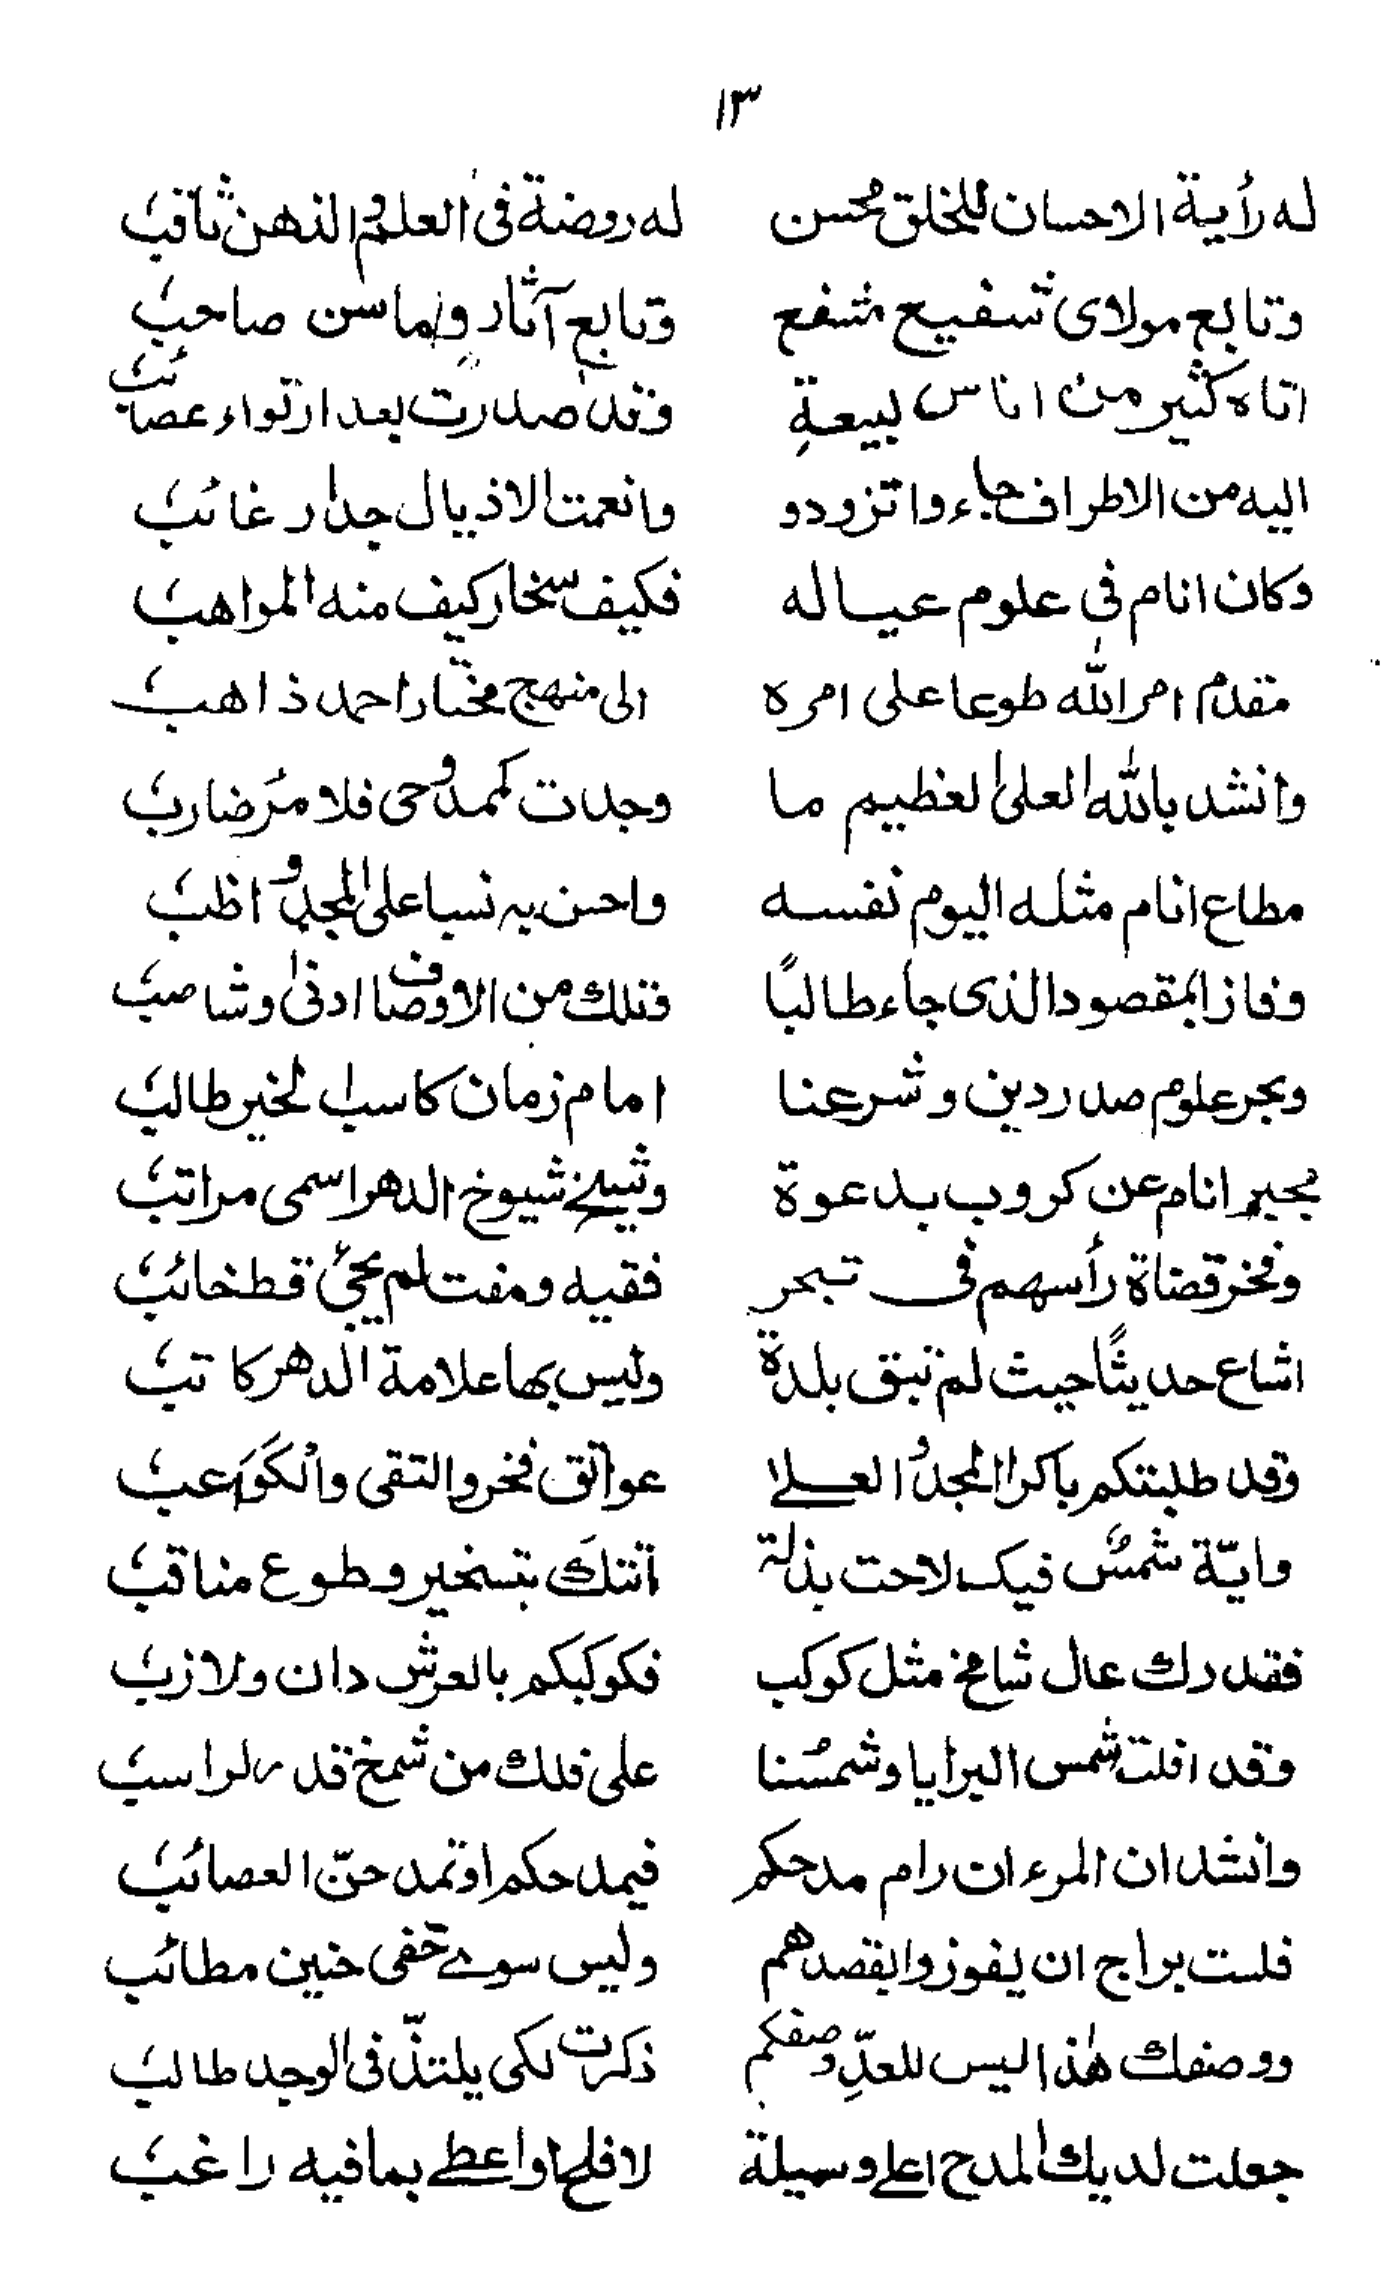 ١٣
له رأية الاحسان للخلق محسن له روضة فى العلم والذهن ثاقب
وتابع مولاى شفيع مشفع وتابع آثار وما سن صاحب
اتاه كثير من اناس لبيعة وقد صدرت بعد ارتواء عصائب
اليه من الاطراف جاءوا تزودو وانعمت الاذيال جدار غائب
وكان انام فى علوم عياله فكيف سخار كيف منه المواهب
مقدم امر الله طوعا على امره الى منهج مختار احمد ذاهب
وانشد بالله العلى العظيم ما وجدت كممدوحى فلا من ضارب
مطاع انام مثله اليوم نفسه واحسن به نسبا على المجد واظب
وفاز بمقصود الذى جاء طالبًا فتلك من الاوصاف ادنى وشاصب
وبحر علوم صدر دين وشرعنا امام زمان كاسب الخير طالب
مجير انام عن كروب بدعوة وشيخ شيوخ الدهر اسمى مراتب
وفخر قضاة رأسهم فى تبحر فقيه ومفت لم يجئ قط خائب
اشاع حديثًا حيث لم تبق بلدة وليس بها علامة الدهر كاتب
وقد طلبتكم باكرا المجد والعلا عواتق فخر والتقى والكواعب
وايّة شمس فيك لاحت بذلة اتتك بتسخير وطوع مناقب
فقدرك عال شامخ مثل كوكب فكوكبكم بالعرش دان ولازب
وقد افلت شمس البرايا وشمسنا على فلك من شمخ قدر لراسب
وانشد ان المرء ان رام مدحكم فيمدحكم او تمدحنّ العصائب
فلست براج ان يفوزوا بقصدهم وليس سوے خفى حنين مطائب
ووصفك هذا ليس للعدِّ وصفكم ذكرت لكى يلتذّ فى الوجد طالب
جعلت لديك المدح اعلے وسيلة لافلح او اعطے بما فيه راغب